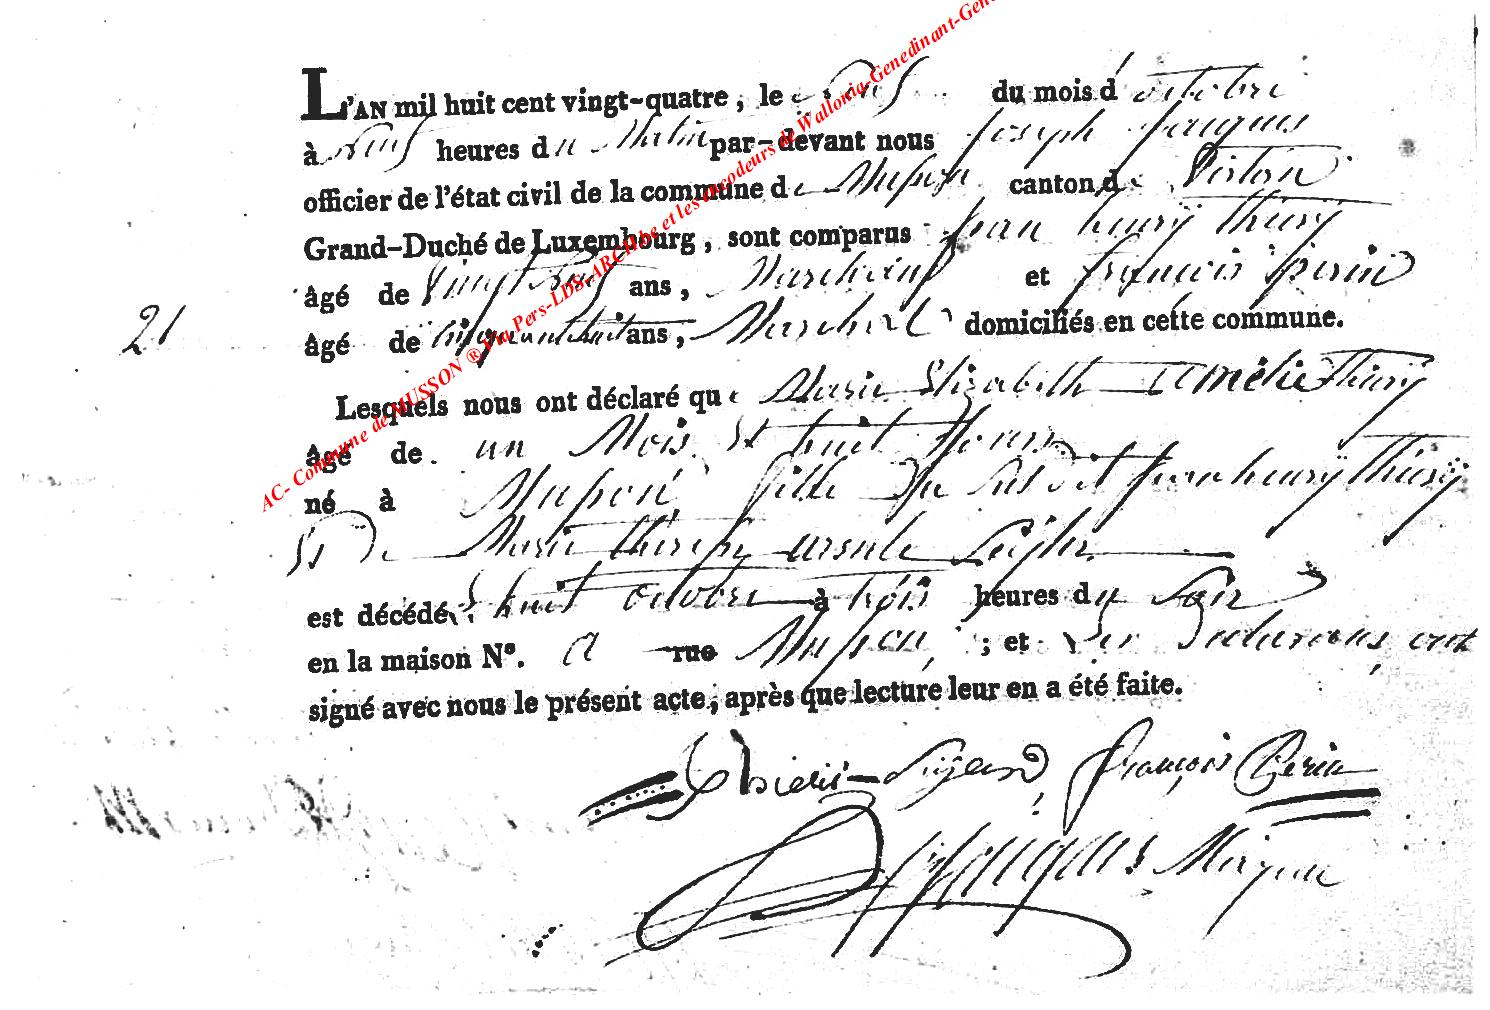 L'AN mil huit cent vingt-quatre, le neuf du mois d'octobre
à neuf heures du Matin par-devant nous Joseph Jacques
officier de l'état civil de la commune de Musson canton de Virton
Grand-Duché de Luxembourg, sont comparus jean henrÿ thierÿ
âgé de Vingt neuf ans, Marchand et françois perin
21
âgé de cinquante huit ans, Marchal domiciliés en cette commune.
Lesquels nous ont déclaré que Marie Elizabeth amélie Thierÿ
âgé de un Mois et huit Jours
né à Musson fille du susdit jean henrÿ Thierÿ
et de Marie thérèse ursule
est décédé le huit octobre à trois heures du Soir
en la maison N°. a rue Musson ; et les Déclarans ont
signé avec nous le présent acte, après que lecture leur en a été faite.
françois Perin
Jacques
AC- Commune de MUSSON ® Via Pers-LDS-ARCH.be et les encodeurs de Wallonia-Genedinant-Gen